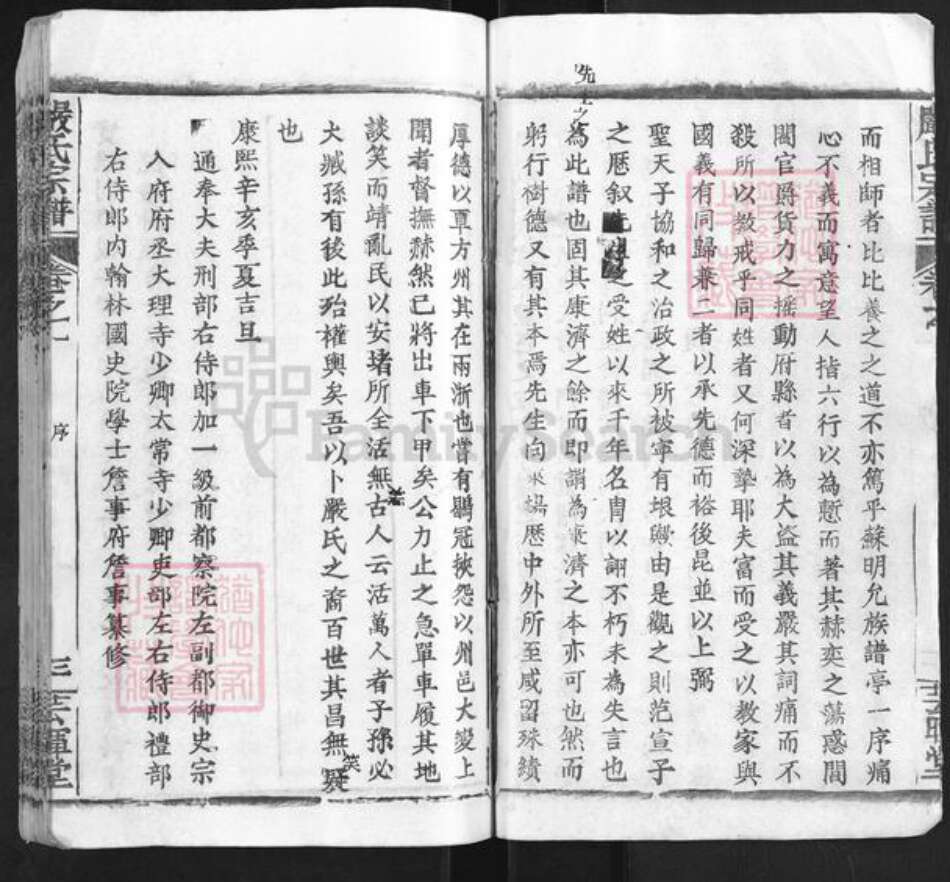 而相師者比比養之之道不亦篤乎蘇明允族譜亭一序痛
心不義而寓意望人指六行以為慙而著其赫奕之蕩惑閭
閻官爵貨力之搖動府縣者以為大盜其義嚴其詞痛而不
殺所以教戒乎同姓者又何深摯耶夫富而受之以教家與
國義有同歸兼二者以承先德而裕後昆並以上弼
聖天子協和之治政之所被寧有垠歟由是觀之則范宣子
之歷叙之受姓以來千年名胄以詡不朽未為失言也
先
為此譜也固其康濟之餘而即謂為康濟之本亦可也然而
躬行樹德又有其本焉先生向來揚歷中外所至咸留殊績
嚴氏宗譜
卷之一
三
雲暉堂
厚德以覃方州其在兩浙也嘗有鶡冠挾怨以州邑大變上
聞者督撫赫然已將出車下甲矣公力止之急單車履其地
談笑而靖亂民以安堵所全活無
古人云活萬人者子孫必
大臧孫有後此殆權輿矣吾以卜嚴氏之裔百世其昌無疑
矣
也
康熙辛亥季夏吉旦
通奉大夫刑部右侍郎加一級前都察院左副都御史宗
人府府丞大理寺少卿太常寺少卿吏部左右侍郎禮部
右侍郎內翰林國史院學士詹事府詹事纂修
嚴氏宗譜
卷之一
序
三
雲暉堂
FamilySearch